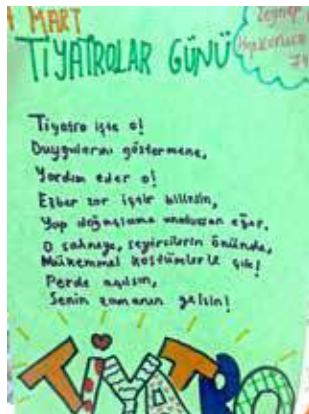 MART
TİYATROLAR GÜNÜ
Zeynep
Tiyatro işte o!
Duygularını göstermene,
Yardım eder o!
Ezber zor iştir bilirsin,
Yap doğaçlama unutursan eğer.
O sahneye, seyircilerin önünde,
Mükemmel kostümlerle çık!
Perde açılsın,
Senin zamanın gelsin!
TİYATRO